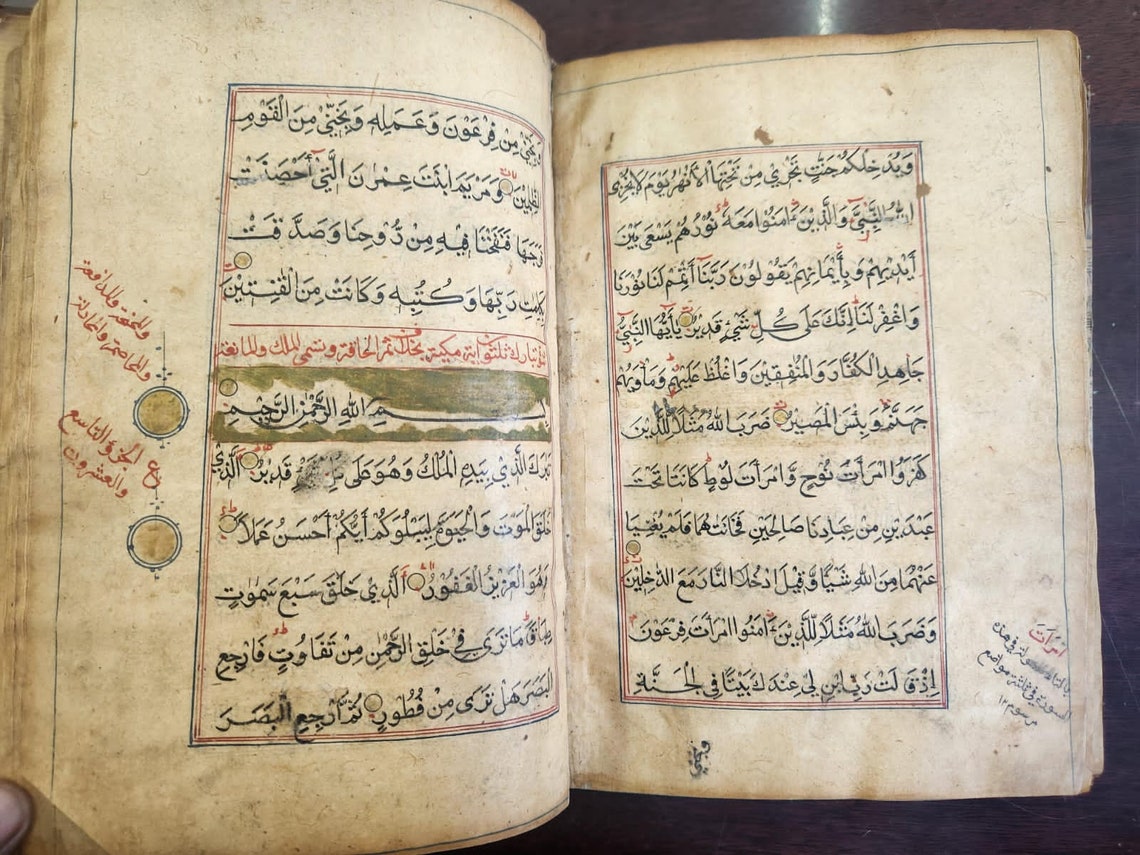 وَيُدْخِلَكُمْ جَنّٰتٍ تَجْرِي مِنْ تَحْتِهَا الْأَنْهٰرُ يَوْمَ لَا يُخْزِى
اللّٰهُ النَّبِيَّ وَالَّذِيْنَ ءَامَنُوا مَعَهٗ نُوْرُهُمْ يَسْعٰى بَيْنَ
أَيْدِيْهِمْ وَبِأَيْمَانِهِمْ يَقُوْلُوْنَ رَبَّنَآ أَتْمِمْ لَنَا نُوْرَنَا
وَاغْفِرْ لَنَا إِنَّكَ عَلٰى كُلِّ شَيْءٍ قَدِيْرٌ يٰٓأَيُّهَا النَّبِيُّ
جَاهِدِ الْكُفَّارَ وَالْمُنٰفِقِيْنَ وَاغْلُظْ عَلَيْهِمْ وَمَأْوٰىهُمْ
جَهَنَّمُ وَبِئْسَ الْمَصِيْرُ ضَرَبَ اللّٰهُ مَثَلًا لِّلَّذِيْنَ
كَفَرُوا امْرَأَتَ نُوْحٍ وَّامْرَأَتَ لُوْطٍ كَانَتَا تَحْتَ
عَبْدَيْنِ مِنْ عِبَادِنَا صَالِحَيْنِ فَخَانَتٰهُمَا فَلَمْ يُغْنِيَا
عَنْهُمَا مِنَ اللّٰهِ شَيْـًٔا وَّقِيْلَ ادْخُلَا النَّارَ مَعَ الدّٰخِلِيْنَ
وَضَرَبَ اللّٰهُ مَثَلًا لِّلَّذِيْنَ ءَامَنُوا امْرَأَتَ فِرْعَوْنَ
إِذْ قَالَتْ رَبِّ ابْنِ لِيْ عِنْدَكَ بَيْتًا فِي الْجَنَّةِ
ونجني
امْرَأَتَ
السورة في ثلثة مواضع
مرسوم ١٢
وَنَجِّنِيْ مِنْ فِرْعَوْنَ وَعَمَلِهٖ وَنَجِّنِيْ مِنَ الْقَوْمِ
الظّٰلِمِيْنَ وَمَرْيَمَ ابْنَتَ عِمْرٰنَ الَّتِيْٓ أَحْصَنَتْ
فَرْجَهَا فَنَفَخْنَا فِيْهِ مِنْ رُّوْحِنَا وَصَدَّقَتْ
بِكَلِمٰتِ رَبِّهَا وَكُتُبِهٖ وَكَانَتْ مِنَ الْقٰنِتِيْنَ
تبارك ثلثون اية مكية ثم الحاقة وتسمى الملك والمانعة
بِسْمِ اللّٰهِ الرَّحْمٰنِ الرَّحِيْمِ
تَبٰرَكَ الَّذِيْ بِيَدِهِ الْمُلْكُ وَهُوَ عَلٰى كُلِّ شَيْءٍ قَدِيْرٌ الَّذِيْ
خَلَقَ الْمَوْتَ وَالْحَيٰوةَ لِيَبْلُوَكُمْ أَيُّكُمْ أَحْسَنُ عَمَلًا
وَهُوَ الْعَزِيْزُ الْغَفُوْرُ الَّذِيْ خَلَقَ سَبْعَ سَمٰوٰتٍ
طِبَاقًا مَا تَرٰى فِيْ خَلْقِ الرَّحْمٰنِ مِنْ تَفَاوُتٍ فَارْجِعِ
الْبَصَرَ هَلْ تَرٰى مِنْ فُطُوْرٍ ثُمَّ ارْجِعِ الْبَصَرَ
والمنجية والدافعة
والمخاصمة والمجادلة
الجزؤ التاسع
والعشرون